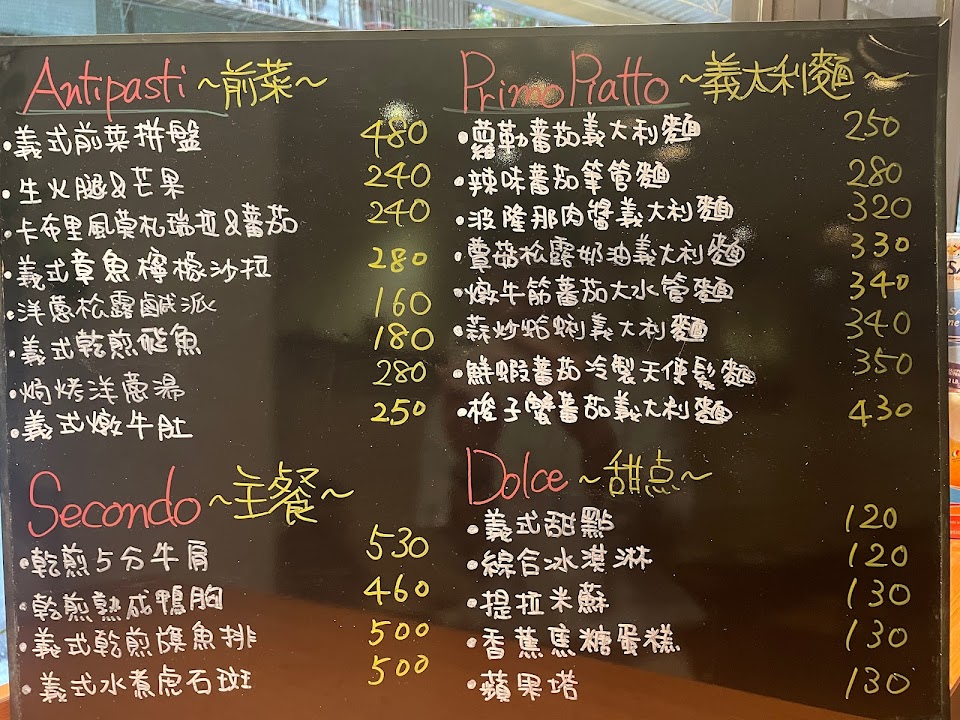 Antipasti ~前菜~
•義式前菜拼盤 480
•生火腿&芒果 240
•卡布里風莫札瑞拉&蕃茄 240
•義式章魚檸檬沙拉 280
•洋蔥松露鹹派 160
•義式乾煎鯷魚 180
•焗烤洋蔥湯 280
•義式燉牛肚 250
Secondo ~主餐~
•乾煎5分牛肩 530
•乾煎熟成鴨胸 460
•義式乾煎旗魚排 500
•義式水煮虎石斑 500
Primo Piatto ~義大利麵~
•蘿勒蕃茄義大利麵 250
•辣味蕃茄筆管麵 280
•波隆那肉醬義大利麵 320
•蕈菇松露奶油義大利麵 330
•燉牛筋蕃茄大水管麵 340
•蒜炒蛤蜊義大利麵 340
•鮮蝦蕃茄冷製天使髮麵 350
•梭子蟹蕃茄義大利麵 430
Dolce ~甜点~
•義式甜點 120
•綜合冰淇淋 120
•提拉米蘇 130
•香蕉焦糖蛋糕 130
•蘋果塔 130